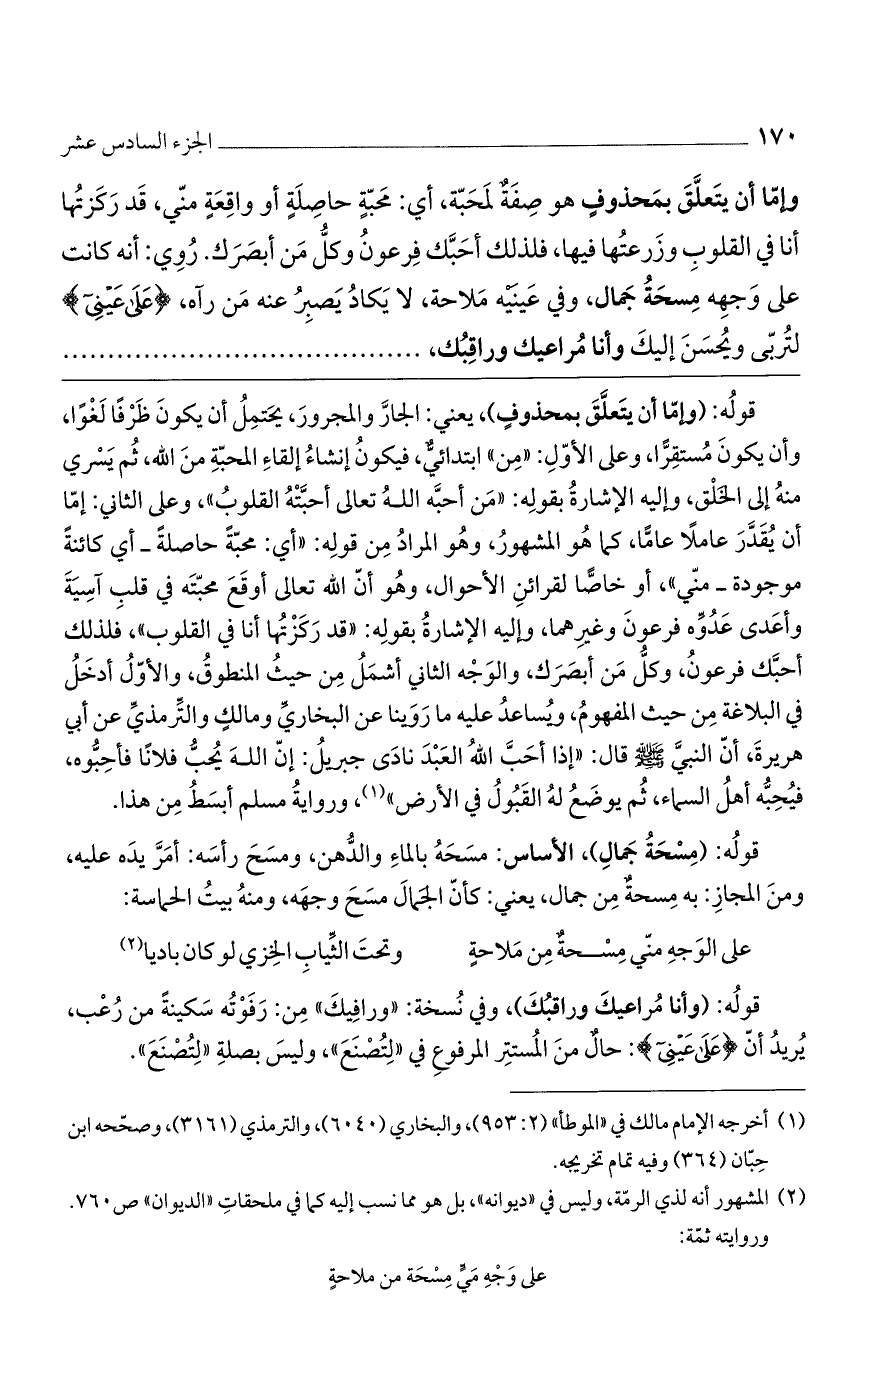 ١٧٠ الجزء السادس عشر
وإمّا أن يتَعلَّقَ بمَحذوفٍ هو صِفَةٌ لَمحَبّة، أي: مَحبّةٍ حاصِلَةٍ أو واقِعَةٍ منّي، قَد رَكَزتُها
أنا في القلوبِ وزَرعتُها فيها، فلذلك أحَبَّك فِرعونُ وكلُّ مَن أبصَرَك. رُوِي: أنه كانت
على وَجهِه مِسحَةُ جَمال، وفي عَينَيْه مَلاحة، لا يَكادُ يَصبِرُ عنه مَن رآه، ﴿عَلَىٰ عَيْنِىٓ﴾
لتُربّى ويُحسَنَ إليكَ وأنا مُراعيك وراقِبُك، ........................................
قولُه: (وإمّا أن يتَعلَّقَ بمحذوفٍ)، يعني: الجارَّ والمجرورَ، يَحتمِلُ أن يكونَ ظَرْفًا لَغْوًا،
وأن يكونَ مُستقِرًّا، وعلى الأوّلِ: «مِن» ابتدائيٌّ، فيكونُ إنشاءُ إلقاءِ المحبّةِ منَ الله، ثُم يَسْري
منهُ إلى الخَلْق، وإليه الإشارةُ بقولِه: «مَن أحبَّه اللهُ تعالى أحبَّتْهُ القلوبُ»، وعلى الثاني: إمّا
أن يُقَدَّرَ عاملًا عامًّا، كما هُو المشهورُ، وهُو المرادُ مِن قولِه: «أي: محبّةً حاصلةً ـ أي كائنةً
موجودة ـ منّي»، أو خاصًّا لقرائنِ الأحوال، وهُو أنّ الله تعالى أوقَعَ محبّتَه في قلبِ آسِيَةَ
وأعَدى عَدُوِّه فرعونَ وغيرِهما، وإليه الإشارةُ بقولِه: «قد رَكَزْتُها أنا في القلوب»، فلذلك
أحبَّك فرعونُ، وكلُّ مَن أبصَرَك، والوَجْه الثاني أشمَلُ مِن حيثُ المنطوقُ، والأوّلُ أدخَلُ
في البلاغة مِن حيث المفهومُ، ويُساعدُ عليه ما رَوَينا عن البخاريِّ ومالكٍ والتِّرمذيِّ عن أبي
هريرةَ، أنّ النبيَّ ﷺ قال: «إذا أحَبَّ اللهُ العَبْدَ نادَى جبريلُ: إنّ اللهَ يُحبُّ فلانًا فأحِبُّوه،
فيُحِبُّه أهلُ السماء، ثُم يوضَعُ لهُ القَبُولُ في الأرض»(١)، وروايةُ مسلم أبسَطُ مِن هذا.
قولُه: (مِسْحَةُ جَمالٍ)، الأساس: مسَحَهُ بالماءِ والدُّهن، ومسَحَ رأسَه: أمَرَّ يدَه عليه،
ومنَ المجازِ: به مِسحةٌ مِن جمال، يعني: كأنّ الجَمالَ مسَحَ وجهَه، ومنهُ بيتُ الحماسة:
على الوَجهِ منّي مِسْحةٌ مِن مَلاحةٍ وتحتَ الثِّيابِ الخِزي لو كان باديا(٢)
قولُه: (وأنا مُراعيكَ وراقبُكَ)، وفي نُسخة: «ورافِيكَ» مِن: رَفَوْتُه سَكينةً من رُعْب،
يُريدُ أنّ ﴿عَلَىٰ عَيْنِىٓ﴾: حالٌ منَ المُستتِر المرفوعِ في «لِتُصْنَعَ»، وليسَ بصلةِ «لِتُصْنَعَ».
(١) أخرجه الإمام مالك في «الموطأ» (٢: ٩٥٣)، والبخاري (٦٠٤٠)، والترمذي (٣١٦١)، وصحّحه ابن
حِبّان (٣٦٤) وفيه تمام تخريجه.
(٢) المشهور أنه لذي الرمّة، وليس في «ديوانه»، بل هو مما نسب إليه كما في ملحقاتِ «الديوان» ص٧٦٠.
وروايته ثمّة:
على وَجْهِ مَيٍّ مِسْحَة من ملاحةٍ